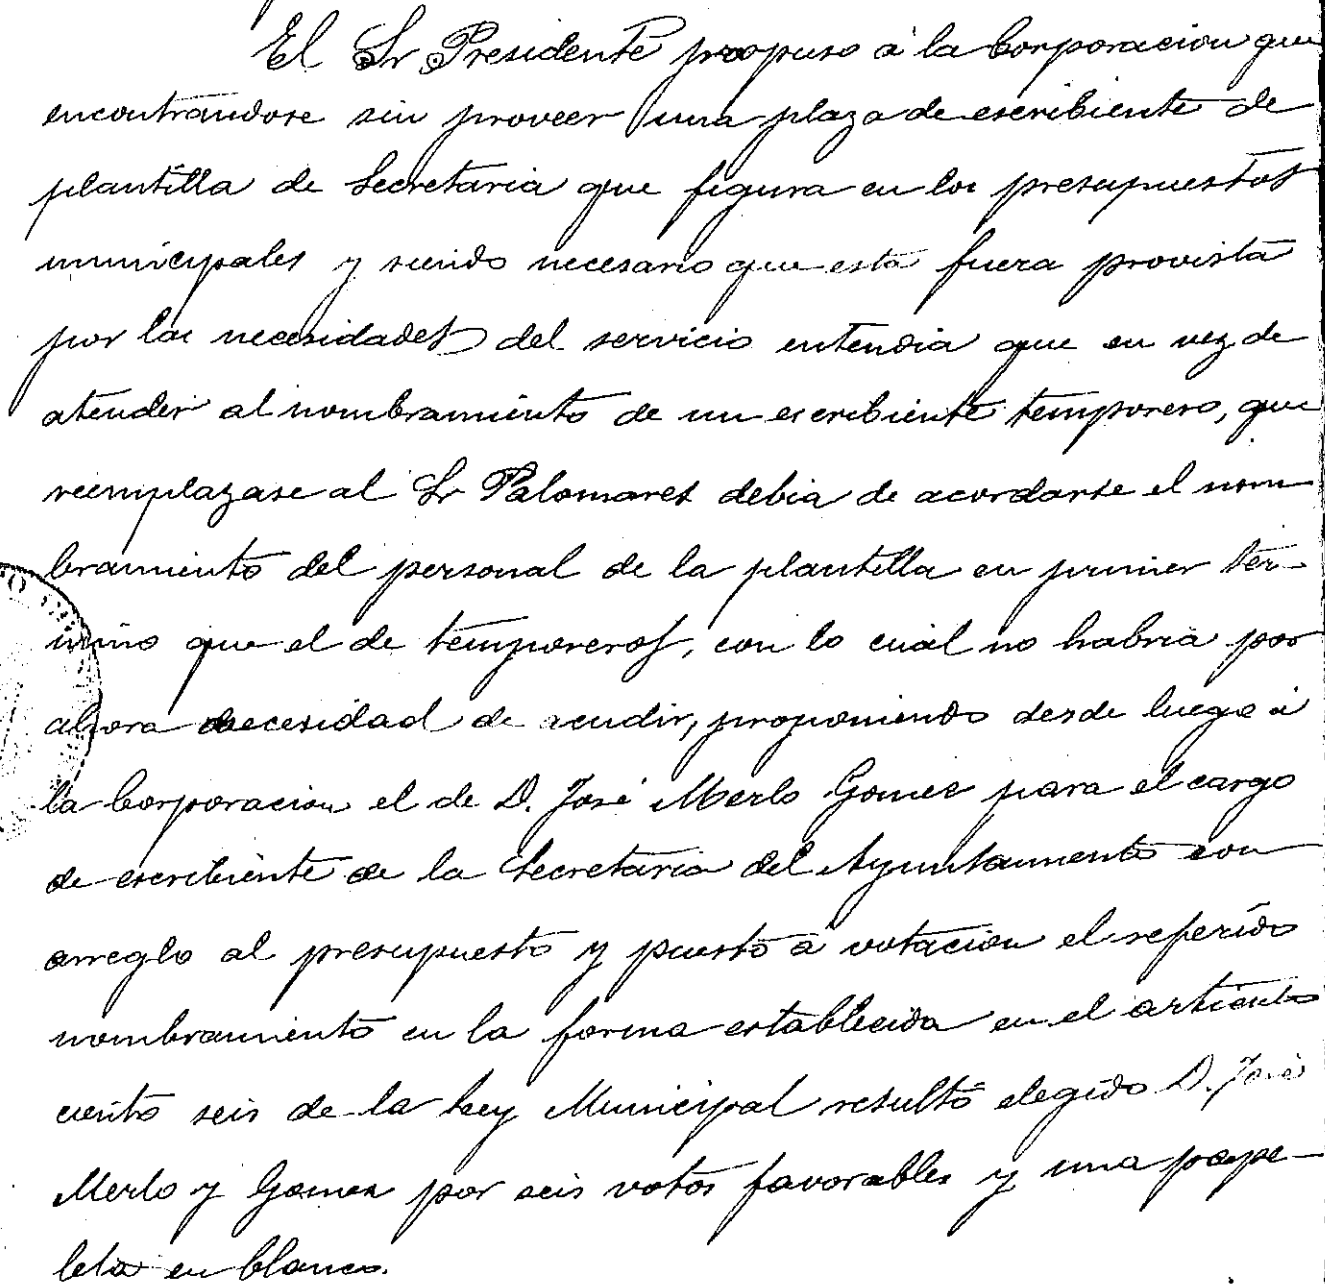 El Sr Presidente propuso á la Corporacion que
encontrandose sin proveer una plaza de escribiente de
plantilla de Secretaria que figura en los presupuestos
municipales y siendo necesario que esta fuera provista
por las necesidades del servicio entendia que en vez de
atender al nombramiento de un escribiente temporero, que
reemplazase al Sr Palomares debia de acordarse el nom
bramiento del personal de la plantilla en primer tér-
mino que el de temporeros, con lo cuál no habria por
ahora necesidad de acudir, proponiendo desde luego á
la Corporacion el de D. José Merlo Gomez para el cargo
de escribiente de la Secretaria del Ayuntamiento con
arreglo al presupuesto y puesto á votacion el referido
nombramiento en la forma establecida en el articulo
ciento seis de la Ley Municipal resultó elegido D. José
Merlo y Gomez por seis votos favorables y una pape-
leta en blanco.